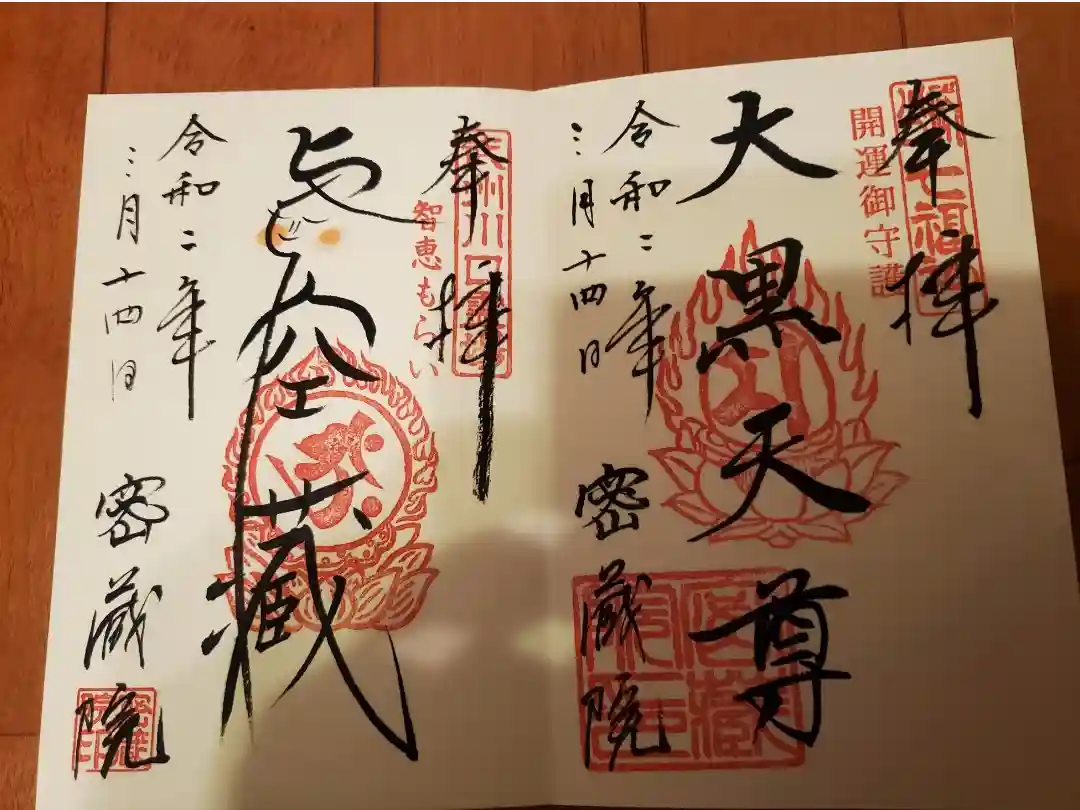 奉拝
開運御守護
大黒天尊
令和二年
三月十四日
密蔵院
奉拝
智恵もらい
虚空藏
令和二年
三月十四日
密蔵院